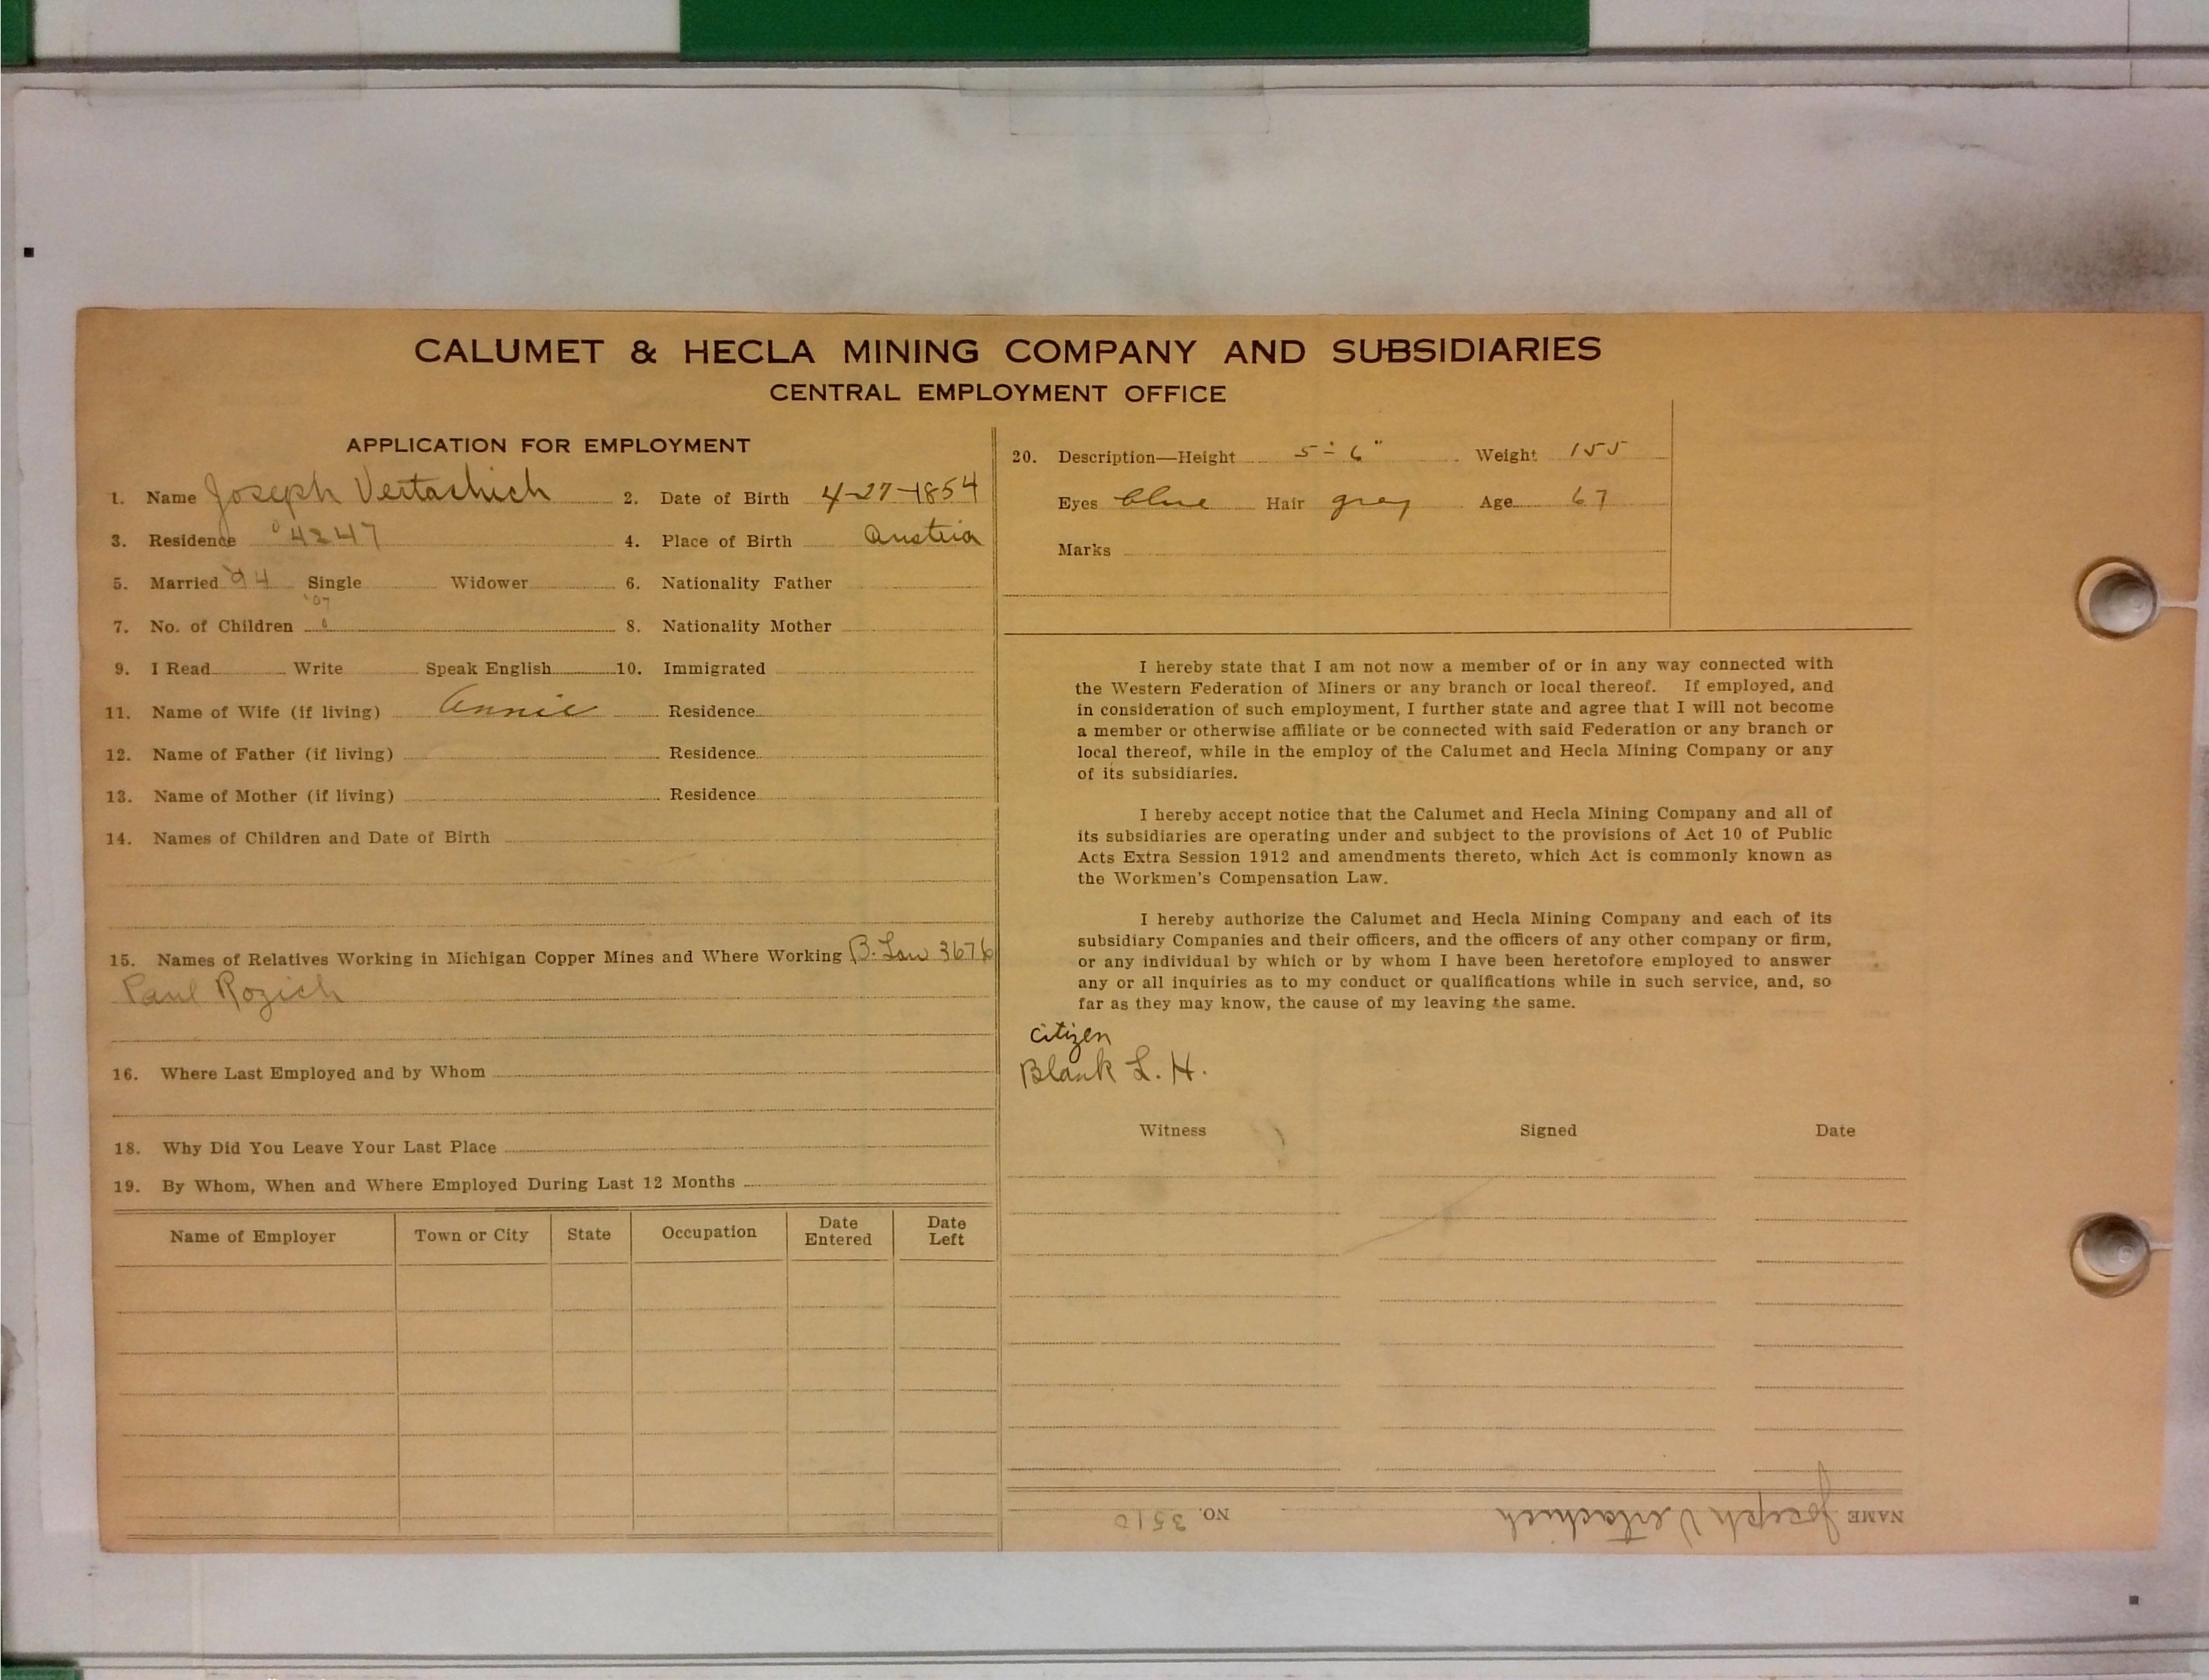 CALUMET & HECLA MINING COMPANY AND SUBSIDIARIES
CENTRAL EMPLOYMENT OFFICE
APPLICATION FOR EMPLOYMENT
1. Name Joseph Vertachich 2. Date of Birth 4-27-1854
3. Residence 4247 4. Place of Birth Austria
5. Married '94 Single Widower 6. Nationality Father
'07
7. No. of Children 0 8. Nationality Mother
9. I Read Write Speak English 10. Immigrated
11. Name of Wife (if living) Annie Residence
12. Name of Father (if living) Residence
13. Name of Mother (if living) Residence
14. Names of Children and Date of Birth
15. Names of Relatives Working in Michigan Copper Mines and Where Working B. Law 3676
Paul Rozich
16. Where Last Employed and by Whom
18. Why Did You Leave Your Last Place
19. By Whom, When and Where Employed During Last 12 Months
Name of Employer Town or City State Occupation Date Entered Date Left
20. Description—Height 5-6" Weight 155
Eyes blue Hair gray Age 67
Marks
I hereby state that I am not now a member of or in any way connected with
the Western Federation of Miners or any branch or local thereof. If employed, and
in consideration of such employment, I further state and agree that I will not become
a member or otherwise affiliate or be connected with said Federation or any branch or
local thereof, while in the employ of the Calumet and Hecla Mining Company or any
of its subsidiaries.
I hereby accept notice that the Calumet and Hecla Mining Company and all of
its subsidiaries are operating under and subject to the provisions of Act 10 of Public
Acts Extra Session 1912 and amendments thereto, which Act is commonly known as
the Workmen's Compensation Law.
I hereby authorize the Calumet and Hecla Mining Company and each of its
subsidiary Companies and their officers, and the officers of any other company or firm,
or any individual by which or by whom I have been heretofore employed to answer
any or all inquiries as to my conduct or qualifications while in such service, and, so
far as they may know, the cause of my leaving the same.
citizen
Blank L. H.
Witness Signed Date
NAME Joseph Vertachich NO. 3510